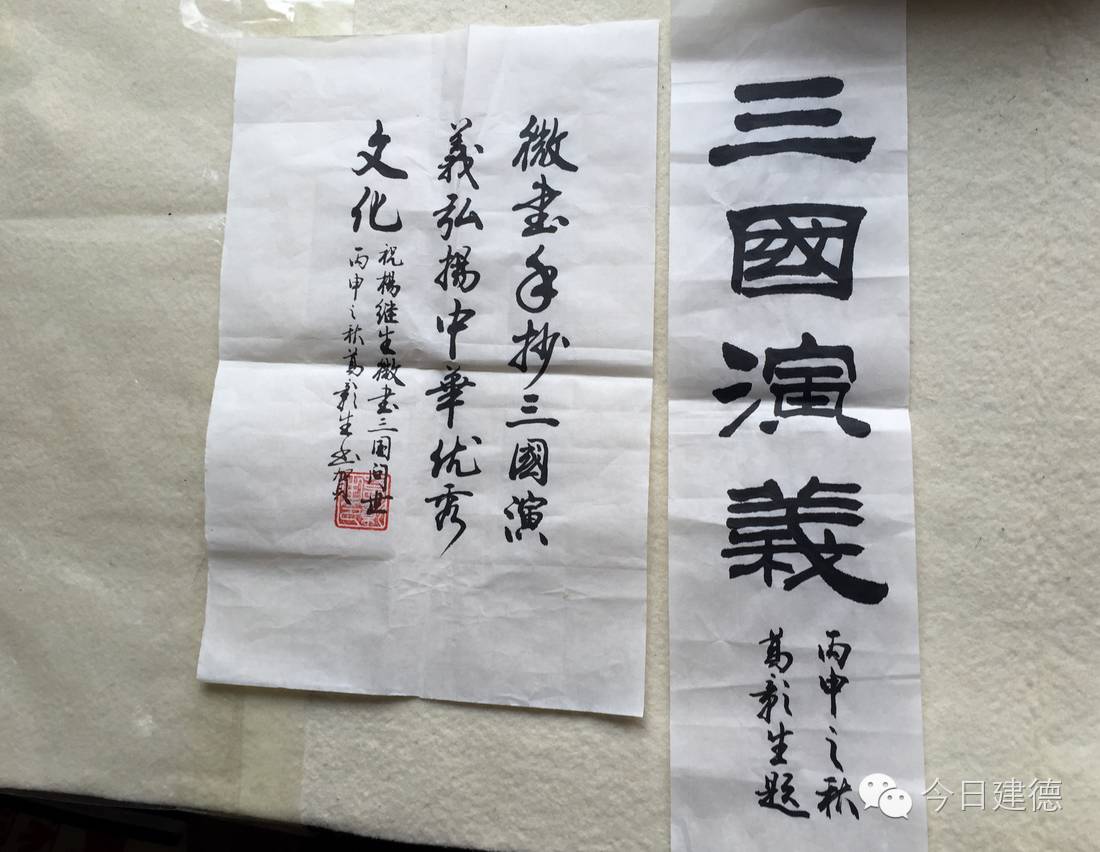 三國演義
丙申之秋
葛彰生题
微書手抄三國演
義弘揚中華优秀
文化
祝楊继生微書三国问世
丙申之秋葛彰生书贺
今日建德